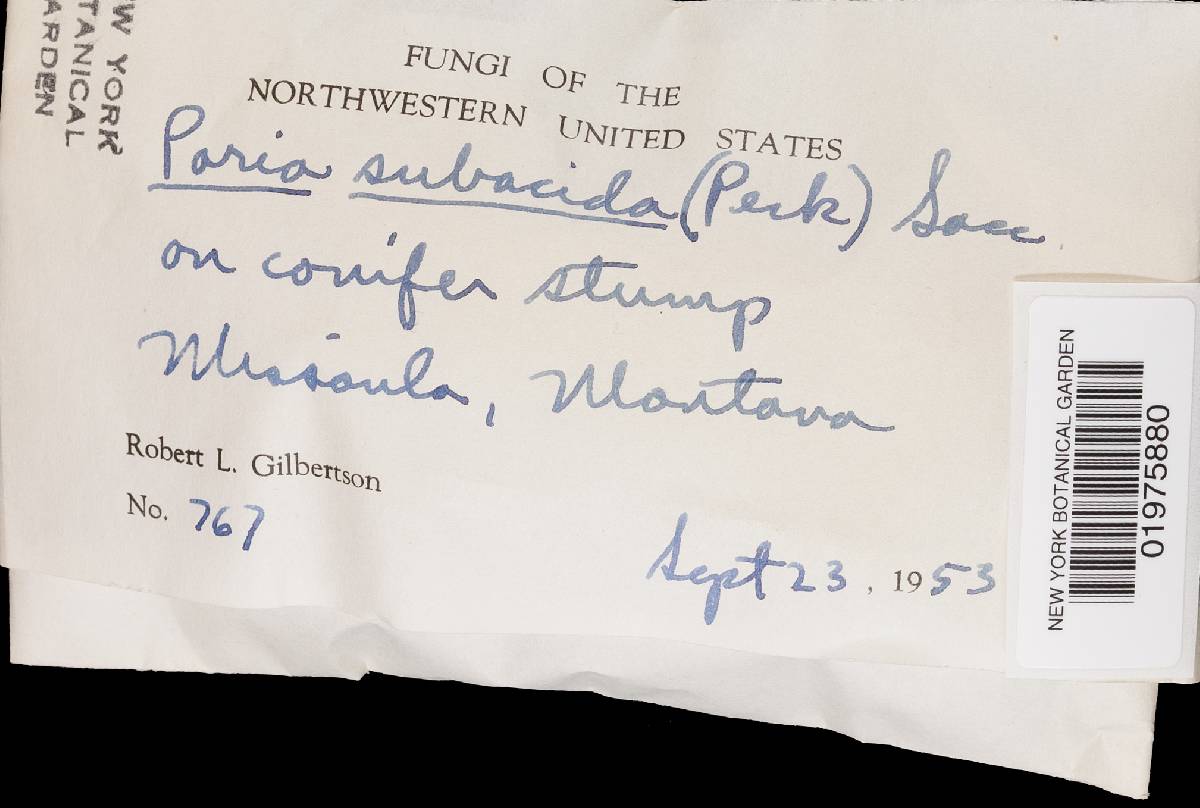 FUNGI OF THE
NORTHWESTERN UNITED STATES
Poria subacida (Peck) Sacc.
on conifer stump
Missoula, Montana
Robert L. Gilbertson
No. 767
Sept 23, 1953
NEW YORK BOTANICAL GARDEN
01975880
W YORK
TANICAL
ARDEN